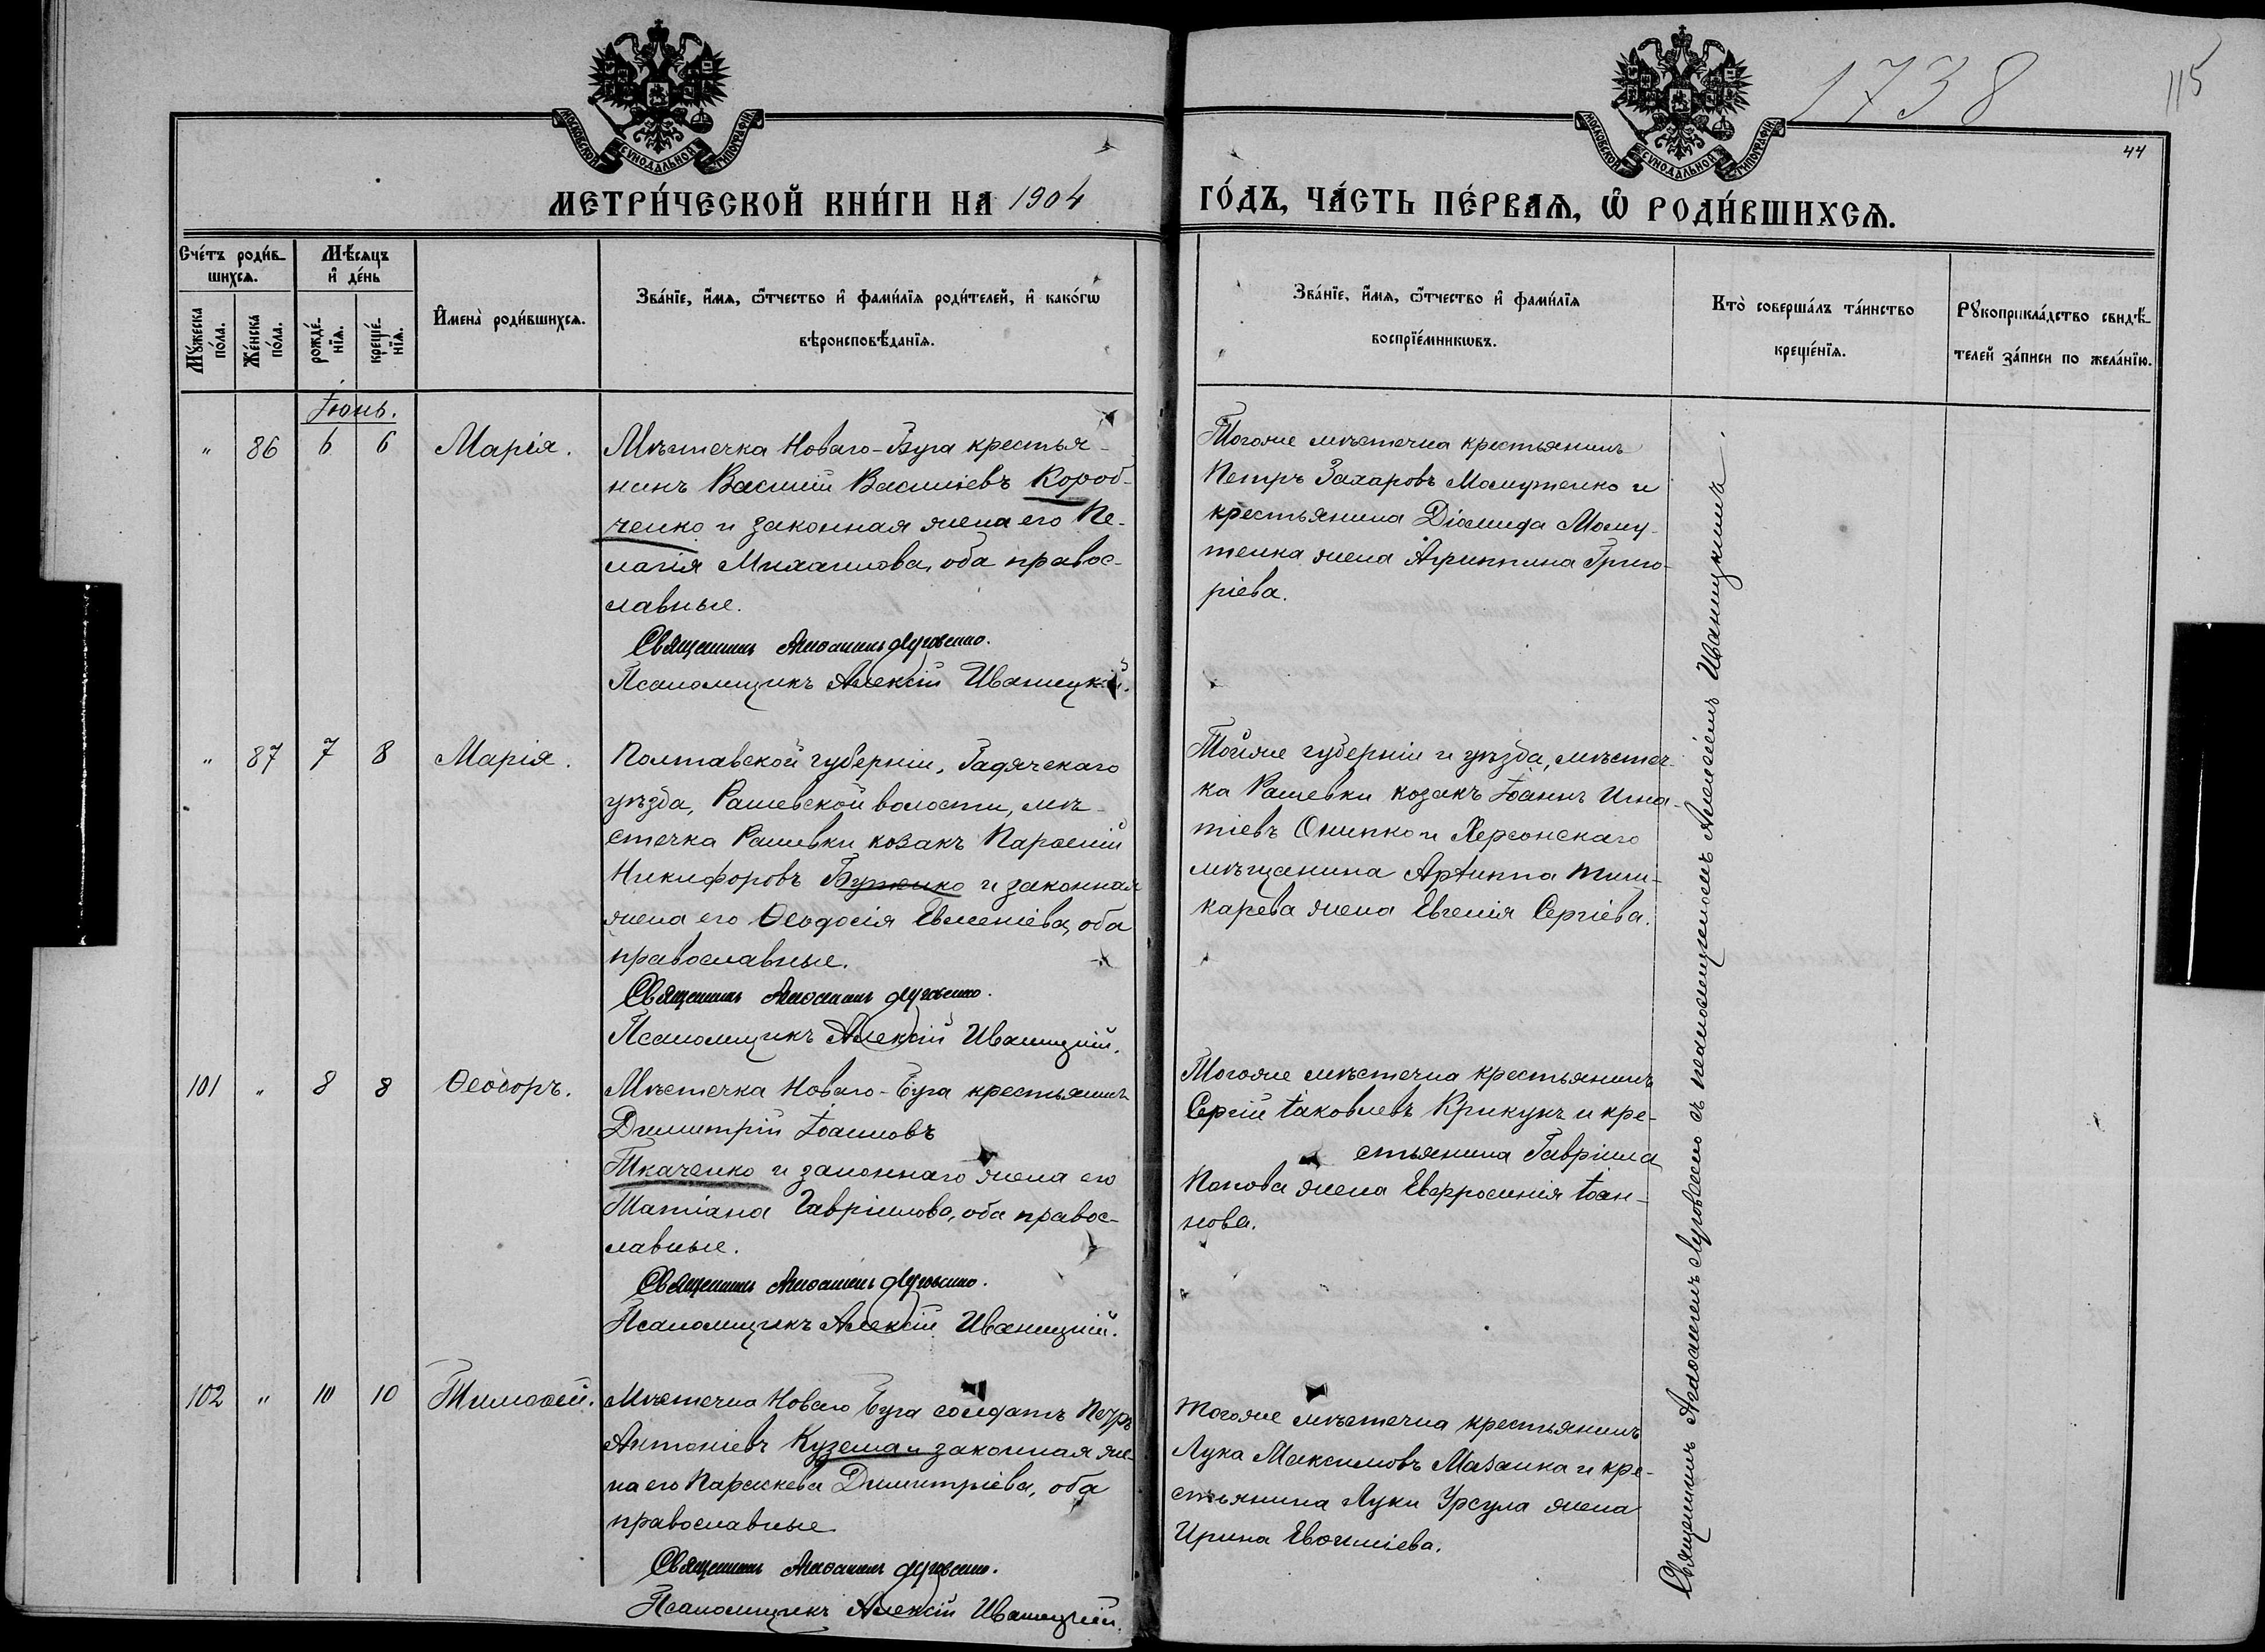 1738
115
44
МОСКОВСКОЙ СѴНОДАЛЬНОЙ ТИПОГРАФІИ
МОСКОВСКОЙ СѴНОДАЛЬНОЙ ТИПОГРАФІИ
МЕТРИ́ЧЕСКОЙ КНИ́ГИ НА 1904
ГО́ДЪ, ЧА́СТЬ ПЕ́РВАѦ, Ѡ҆ РОДИ́ВШИХСѦ.
Сче́тъ роди́в-
шихсѧ.
Мѣ́сяцъ
и҆ де́нь
Мꙋ́жеска
по́ла.
Же́нска
по́ла.
рожде́-
нїѧ.
креще́-
нїѧ.
И҆мена̀ роди́вшихсѧ.
Зва́нїе, и҆́мѧ, ѻ҆́тчество и҆ фами́лїѧ роди́телей, и҆ како́гѡ
вѣроисповѣ́данїѧ.
Зва́нїе, и҆́мѧ, ѻ҆́тчество и҆ фами́лїѧ
воспрїе́мникѡвъ.
Кто̀ соверша́лъ та́инство
креще́нїѧ.
Рꙋкоприкла́дство свидѣ́-
телей за́писи по жела́нїю.
Іюнь.
" 86 6 6 Марія.
Мѣстечка Новаго-Буга крестья-
нинъ Василій Василіевъ Короб-
ченко и законная жена его Пе-
лагія Михаилова, оба правос-
лавные.
Священникъ Агаѳангелъ Луговенко.
Псаломщикъ Алексій Иваницкій.
Тогоже мѣстечка крестьянинъ
Петръ Захаровъ Момутенко и
крестьянина Діомида Мому-
тенка жена Агриппина Григо-
ріева.
" 87 7 8 Марія.
Полтавской губерніи, Гадячскаго
уѣзда, Рашевской волости, мѣ-
стечка Рашевки козакъ
Никифоровъ и законная
жена его Ѳеодосія Евменіева, оба
православные.
Священникъ Агаѳангелъ Луговенко.
Псаломщикъ Алексій Иваницкій.
Тойже губерніи и уѣзда, мѣстеч-
ка Рашевки козакъ Іоаннъ Игна-
тіевъ Онипко и Херсонскаго
мѣщанина
жена Евгенія Сергіева.
101 " 8 8 Ѳеодоръ.
Мѣстечка Новаго-Буга крестьянинъ
Димитрій Іоанновъ
Ткаченко и законнаго жена его
Татіана Гавріилова, оба правос-
лавные.
Священникъ Агаѳангелъ Луговенко.
Псаломщикъ Алексій Иваницкій.
Тогоже мѣстечка крестьянинъ
Сергій Іаковлевъ Крикунъ и кре-
стьянина Гавріила
Попова жена Евфросинія Іоан-
нова.
102 " 10 10 Тимоѳей.
Мѣстечка Новаго Буга солдатъ Петръ
Антоніевъ Кузема и законная же-
на его Параскева Димитріева, оба
православные.
Священникъ Агаѳангелъ Луговенко.
Псаломщикъ Алексій Иваницкій.
Тогоже мѣстечка крестьянинъ
Лука Максимовъ Мазанка и кре-
стьянина Луки Урсула жена
Ирина Евѳиміева.
Священникъ Агаѳангелъ Луговенко съ псаломщикомъ Алексіемъ Иваницкимъ.